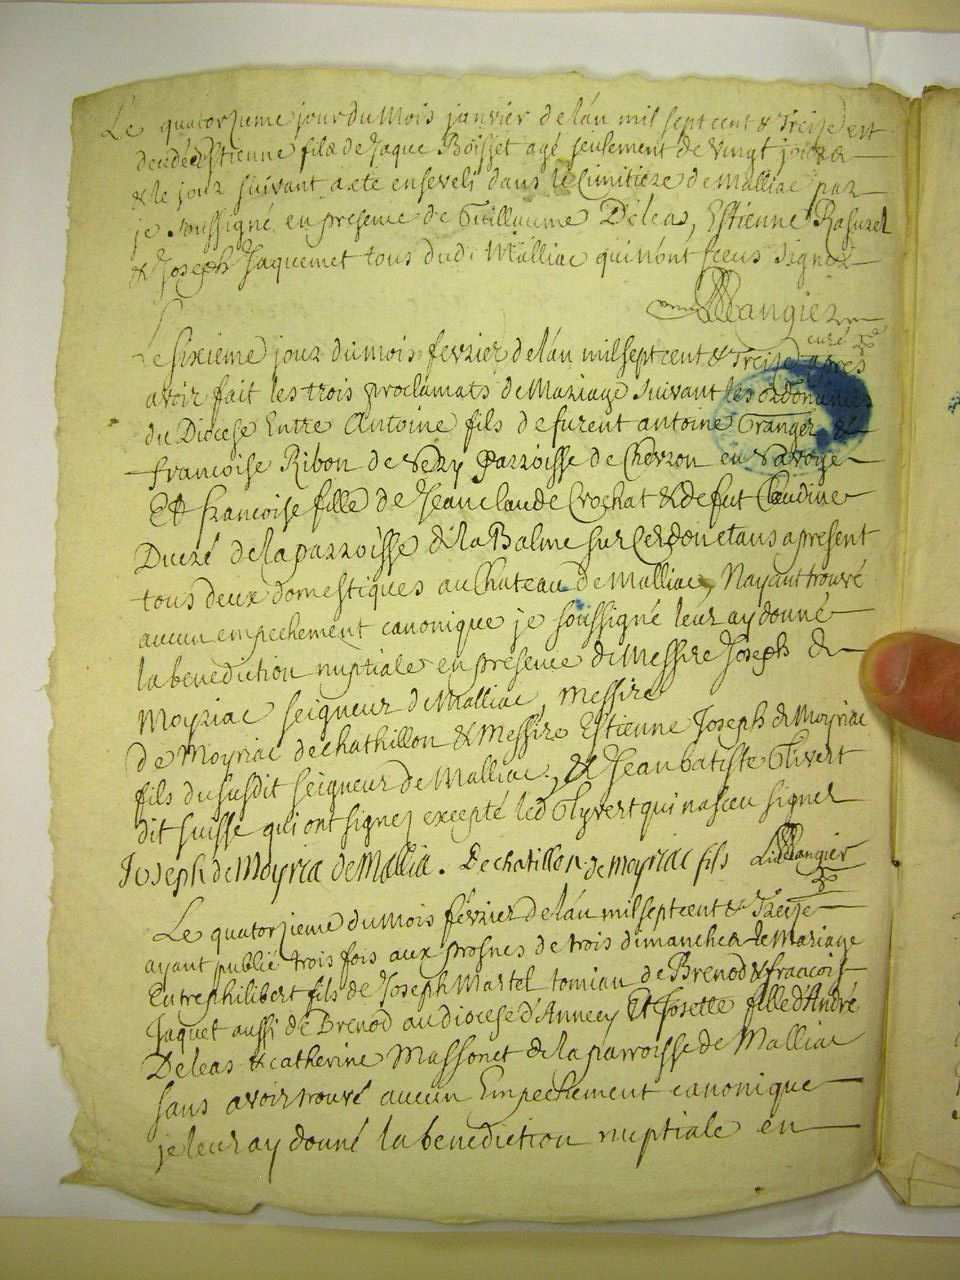 Le quatorzieme jour du Mois janvier de lán mil sept cent & Treize est
decedé Estienne fils de Jaque Boisset agé seulement de vingt jours
& le jour suivant a ete enseveli dans le Cimitiere de Malliac par
je soussigné en presence de Guillaume Déleas, Estienne Rasurel
& Joseph Jaquemet tous dudi Malliac qui n'ont sceus signer
Mangier
curé
Le sixieme jour du mois fevrier de lán mil sept cent & Treize apres
avoir fait les trois proclamats de Mariage suivant les ordonances
du Diocese Entre Antoine fils de furent antoine Granger &
francoise Ribon de Parroisse de en Savoye
Et francoise fille de Jean claude Crochat & de fut Claudine
Ducré de la parroisse de la Balme sur Cerdon etans a present
tous deux domestiques au Chateau de Malliac, Nayant trouvé
aucun empechement canonique je soussigné leur ay donné
la benediction nuptiale en presence de Messire Joseph de
Moyriac seigneur de Malliac, Messire
de Moyriac de chathillon & Messire Estienne Joseph de Moyriac
fils du susdit seigneur de Malliac, & Jean batiste Glivert
dit suisse qui ont signez excepté led Glyvert qui na sceu signer
Joseph de Moyria de Mallia . De chatillon de moyriac fils Mangier
Le quatorzieme du Mois février de lán mil sept cent & Treize
ayant publié trois fois aux prosnes de trois dimanches le Mariage
Entre philibert fils de Joseph Martel tomian de Brenod & francoise
Jaquet aussi de Brenod au diocese d'Annecy Et Josette fille d'André
Deleas & catherine Massonet de la parroisse de Malliac
sans avoir trouvé aucun Empechement canonique
je leur ay donné la benediction nuptiale en